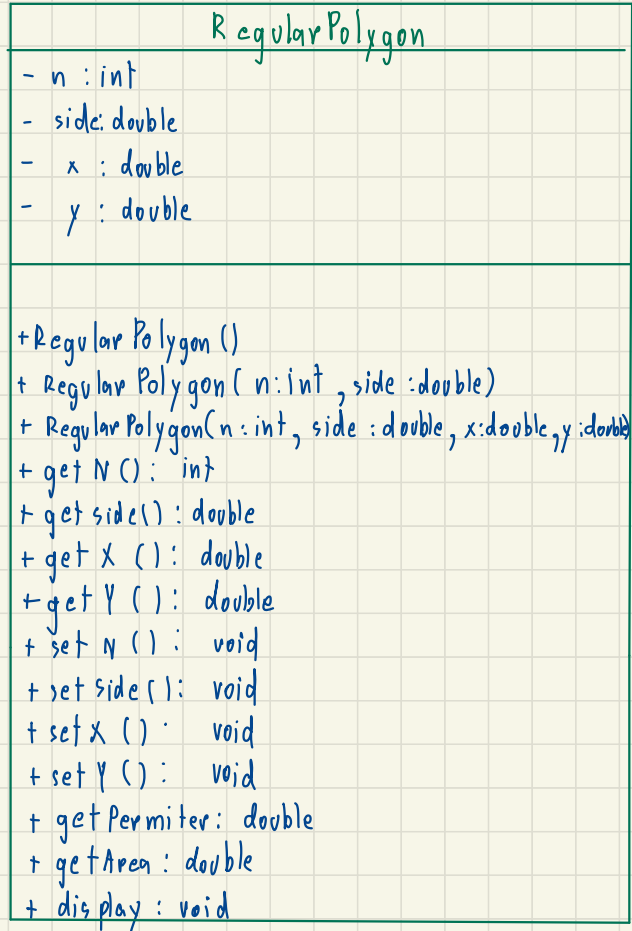 RegularPolygon
- n : int
- side: double
- x : double
- y : double
+ RegularPolygon()
+ RegularPolygon( n:int , side :double)
+ RegularPolygon(n: int, side : double, x:double,y:double)
+ getN(): int
+ getside(): double
+ getX (): double
+ getY (): double
+ setN () : void
+ setside(): void
+ setX () : void
+ setY () : void
+ getPermiter: double
+ getArea: double
+ display: void